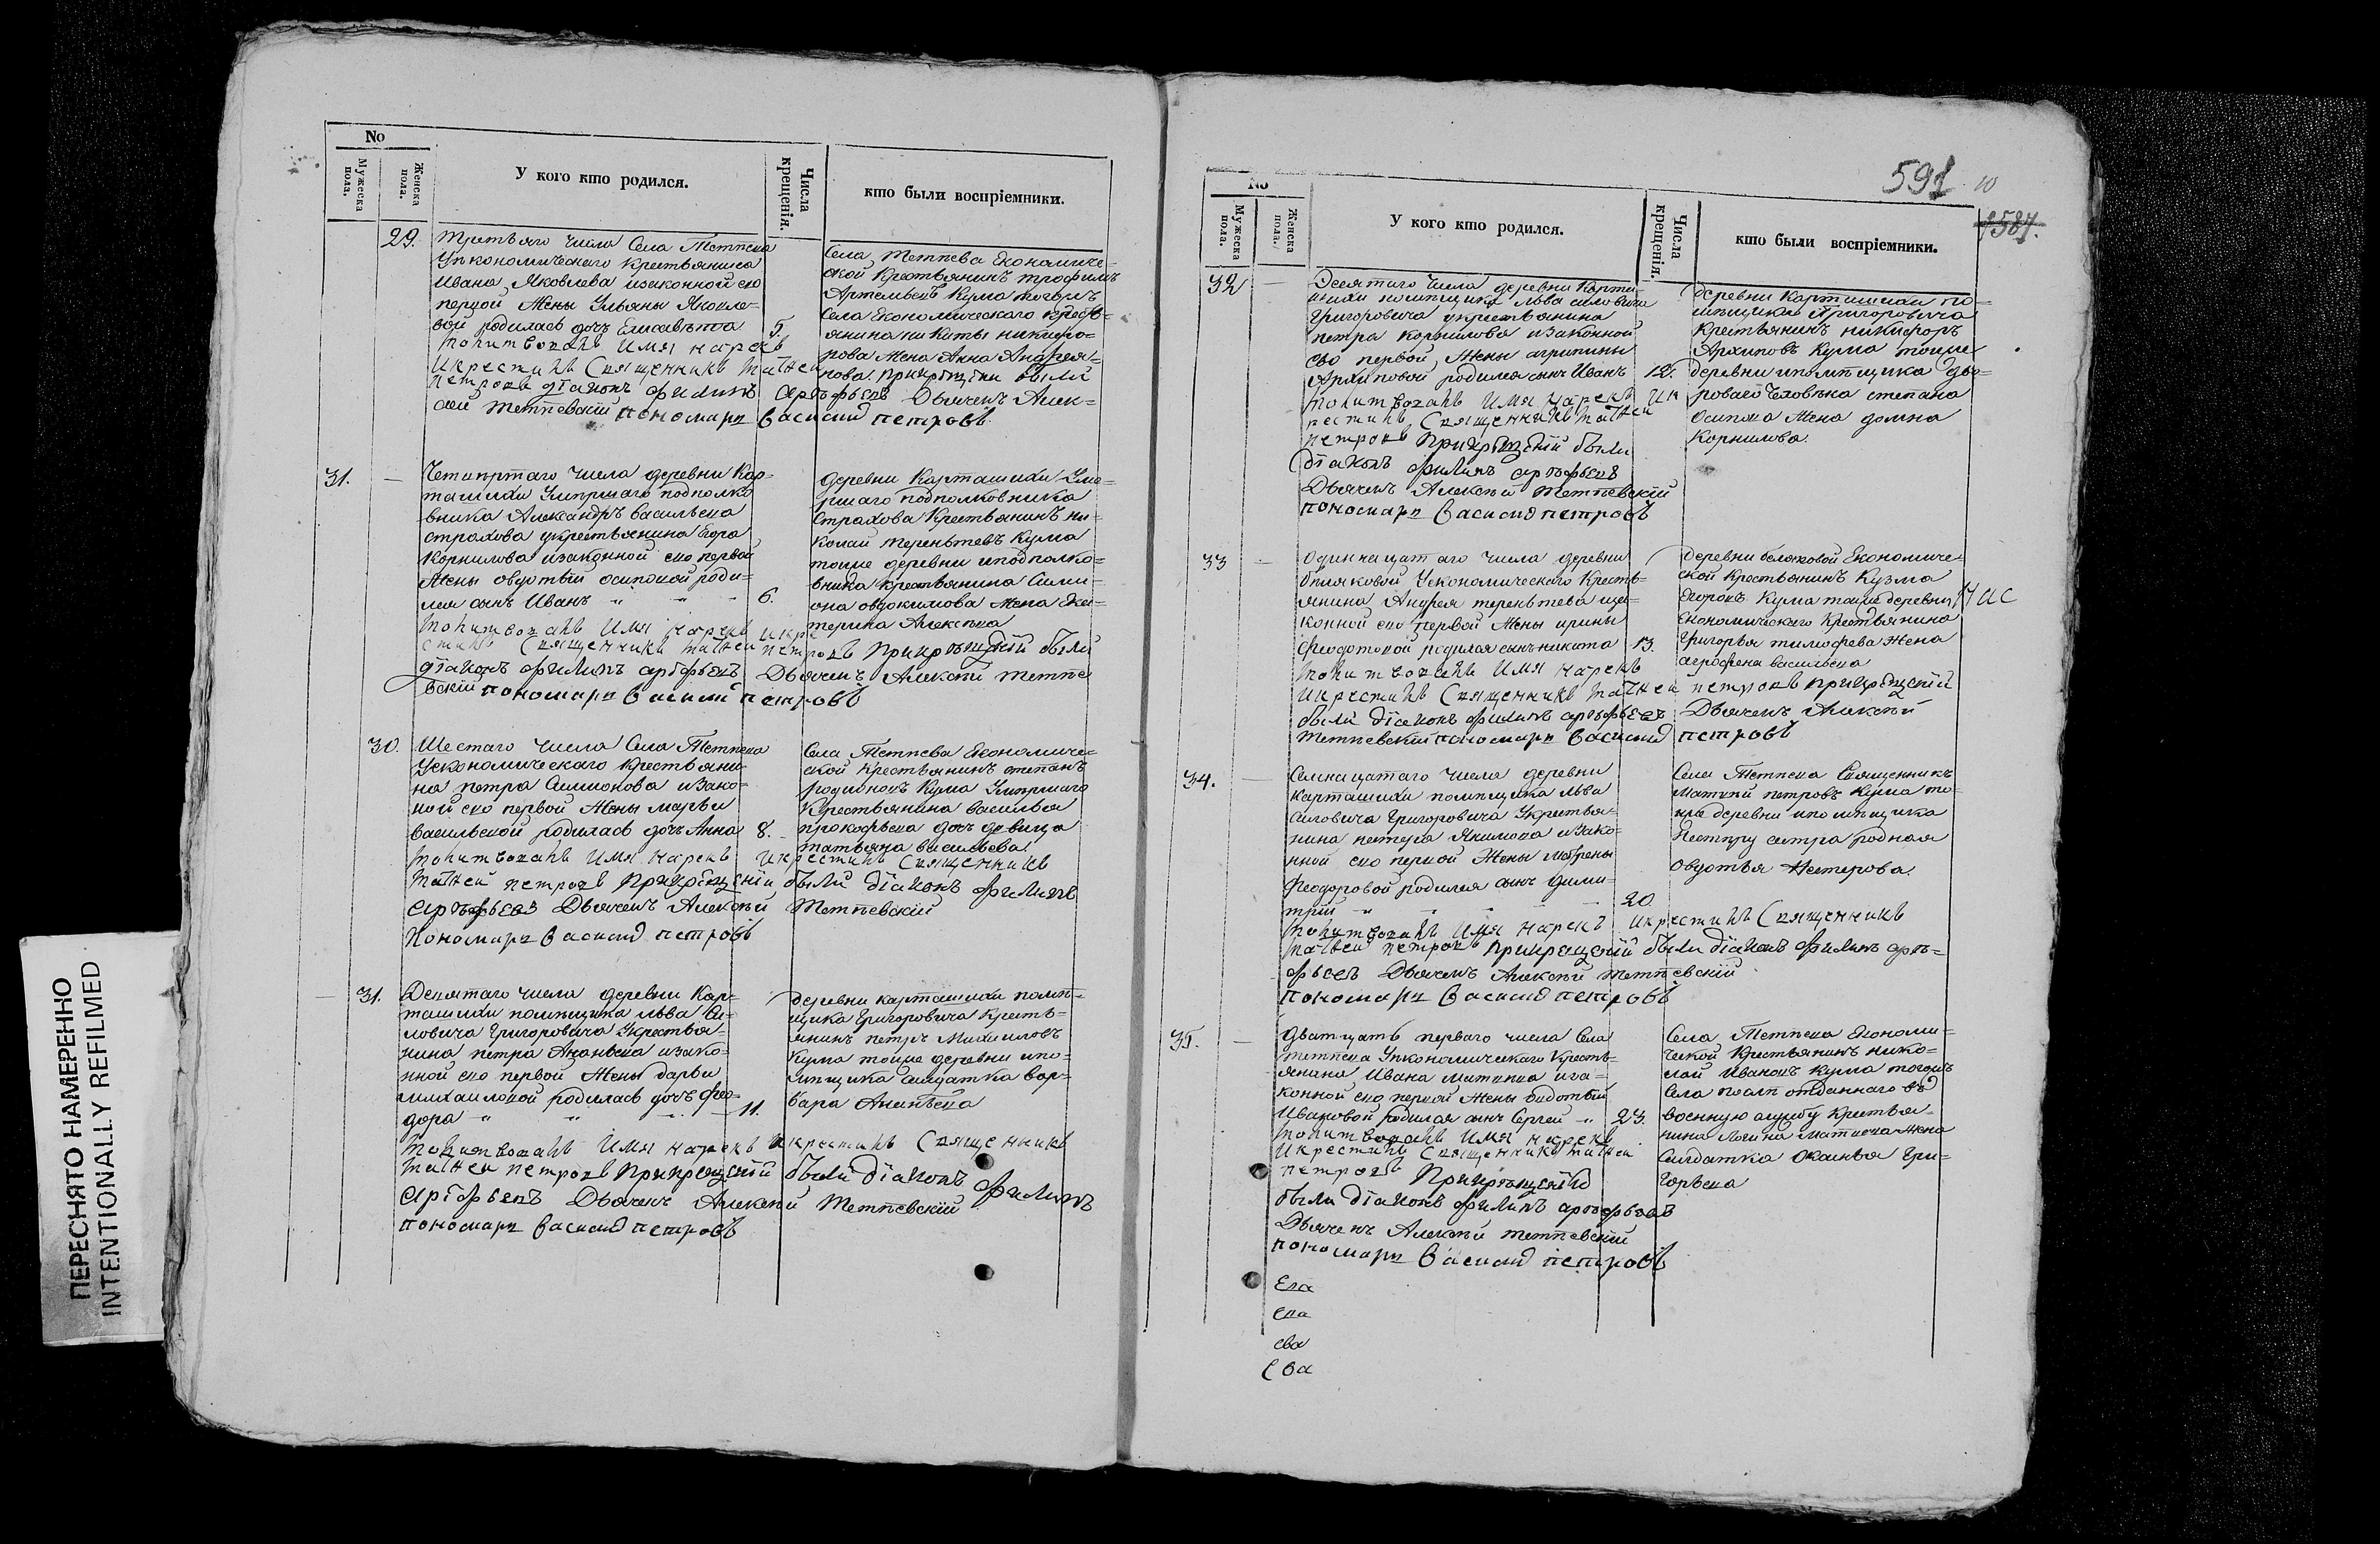 No
Мужеска пола.
Женска пола.
У кого кто родился.
Числа крещенія.
кто были воспріемники.
29.
Третьяго числа Села Тетпева
Уикономическаго крестьянина
Ивана Яковлева изаконной его
первой Жены Ульяны Яковле-
вой родилась дочь Елисавѣта
5.
молитвовалъ имя нарекъ
икрестилъ Священникъ Матвей
петровъ діаконъ филипъ арѣфьевъ Дьячекъ Алек-
сѣй тетпевскій пономарь василий петровъ
Села Тетпева Економиче-
ской крестьянинъ трофимъ
Артемьевъ Кума тогожъ
Села Економическаго кресть-
янина никиты никифо-
рова Жена Анна Андрея-
нова прикрѣщеніи были
31.
Четвертаго числа деревни Кар-
ташихи Умершаго подполко
вника Александръ васильева
страхова укрестьянина Егора
Корнилова изаконной его первой
Жены овдотьи осиповой роди-
лся сынъ Иванъ
6.
молитвовалъ имя нарекъ икре
стилъ Священникъ матвей петровъ прикрѣщеніи были
діаконъ филипъ арѣфьевъ Дьячекъ Алексѣй тетпе
вскій пономарь василий петровъ
деревни Карташихи Уме-
ршаго подполковника
Страхова Крестьянинъ ни-
колай терентьевъ Кума
тоиже деревни иподполко-
вника крестьянина Сими-
она овдокимова Жена Ека-
терина Алексѣева
30.
Шестаго числа Села Тетпева
Уекономическаго крестьяни-
на петра Симионова изако-
ной его первой Жены марьи
васильевой родилась дочь Анна
8.
молитвовалъ имя нарекъ икрестилъ Священникъ
матвей петровъ прикрѣщеніи были діаконъ филипъ
арѣфьевъ Дьячекъ Алексѣй Тетпевскій
пономарь василий петровъ
Села Тетпева Економиче-
ской крестьянинъ степанъ
родионовъ Кума Умершаго
Крестьянина василья
прокофьева дочь девица
татьяна васильева
31.
Девятаго числа деревни Кар-
ташихи помѣщика льва Си-
ловича Григоровича Укрестья-
нина петра Ананьева изако-
нной его первой Жены дарьи
михаиловой родилась дочь фео-
дора
11.
молитвовалъ имя нарекъ икрестилъ Священникъ
матвей петровъ прикрещеніи были діаконъ филипъ
арѣфьевъ Дьячекъ Алексѣй Тетпевскій
пономарь василий петровъ
деревни карташихи помѣ-
щика Григоровича Кресть-
янинъ петръ Михаиловъ
Кума тоиже деревни ипо-
мѣщика салдатка вар-
вара Ананьева
591
10
587.
No
Мужеска пола.
Женска пола.
У кого кто родился.
Числа крещенія.
кто были воспріемники.
32
Десятаго числа деревни Карта-
шихи помѣщика льва силовича
Григоровича укрестьянина
петра корнилова изаконной
его первой Жены агрипины
Архиповой родился сынъ Иванъ
12.
молитвовалъ имя нарекъ ик
рестилъ Священникъ матвей
петровъ прикрѣщеніи были
діаконъ филипъ арѣфьевъ
Дьячекъ Алексѣй Тетпевскій
пономарь василий петровъ
деревни Карташихи по-
мѣщика Григоровича
Крестьянинъ никифоръ
Архиповъ Кума тоиже
деревни ипомѣщика дво-
роваго Человѣка степана
Осипова Жена домна
Корнилова.
33
Одиннацатаго числа деревни
бѣляковой Уекономическаго Кресть-
янина Андрея терентьева иза-
конной его первой Жены ирины
феодотовой родился сынъ никита
13.
молитвовалъ имя нарекъ
икрестилъ Священникъ матвей петровъ прикрѣщеніи
были діаконъ филипъ арѣфьевъ Дьячекъ Алексѣй
тетпевскій пономарь василий петровъ
деревни беляковой Економиче-
ской крестьянинъ Кузма
Егоровъ Кума тоиже деревни
Економическаго крестьянина
Григорья тимофева Жена
агрофена васильева
34.
Семнацатаго числа деревни
карташихи помѣщика льва
Силовича Григоровича Укрестья-
нина нестера Якимова изако-
нной его первой Жены матрены
феодоровой родился сынъ дими-
трій
20
молитвовалъ имя нарекъ икрестилъ Священникъ
матвей петровъ прикрещеніи были діаконъ филипъ арѣ-
фьевъ Дьячекъ Алексѣй тетпевскій
пономарь василий петровъ
Села Тетпева Священникъ
матвѣй петровъ Кума то-
иже деревни ипомѣщика
Нестеру сестра родная
Овдотья Нестерова.
35.
Дватцать перваго числа Села
тетпева Уикономическаго Кресть-
янина Ивана матвѣева иза-
конной его первой Жены
Ивановой родился сынъ Сергей
23.
молитвовалъ имя нарекъ
икрестилъ Священникъ матвей
петровъ прикрѣщеніи
были діаконъ филипъ арѣфьевъ
Дьячекъ Алексѣй тетпевскій
пономарь василий петровъ
Села Тетпева Економи-
ческой Крестьянинъ нико-
лай Ивановъ Кума тогожъ
Села отданнаго въ
военную службу крестья-
нина матвѣева Жена
Салдатка Гри-
горьева
Ева
ева
ева
Ева
ПЕРЕСНЯТО НАМЕРЕННО
INTENTIONALLY REFILMED